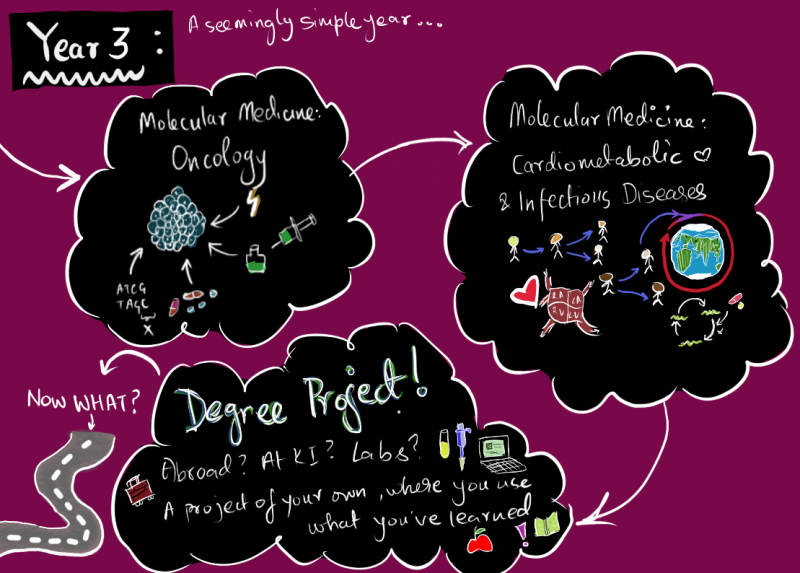 Year 3 :
A seemingly simple year...
Molecular Medicine:
Oncology
ATCG
TAGC
X
Molecular Medicine:
Cardiometabolic ♡
& Infectious Diseases
Degree Project!
Abroad? At KI? Labs?
A project of your own, where you use
what you've learned
!
NOW WHAT?